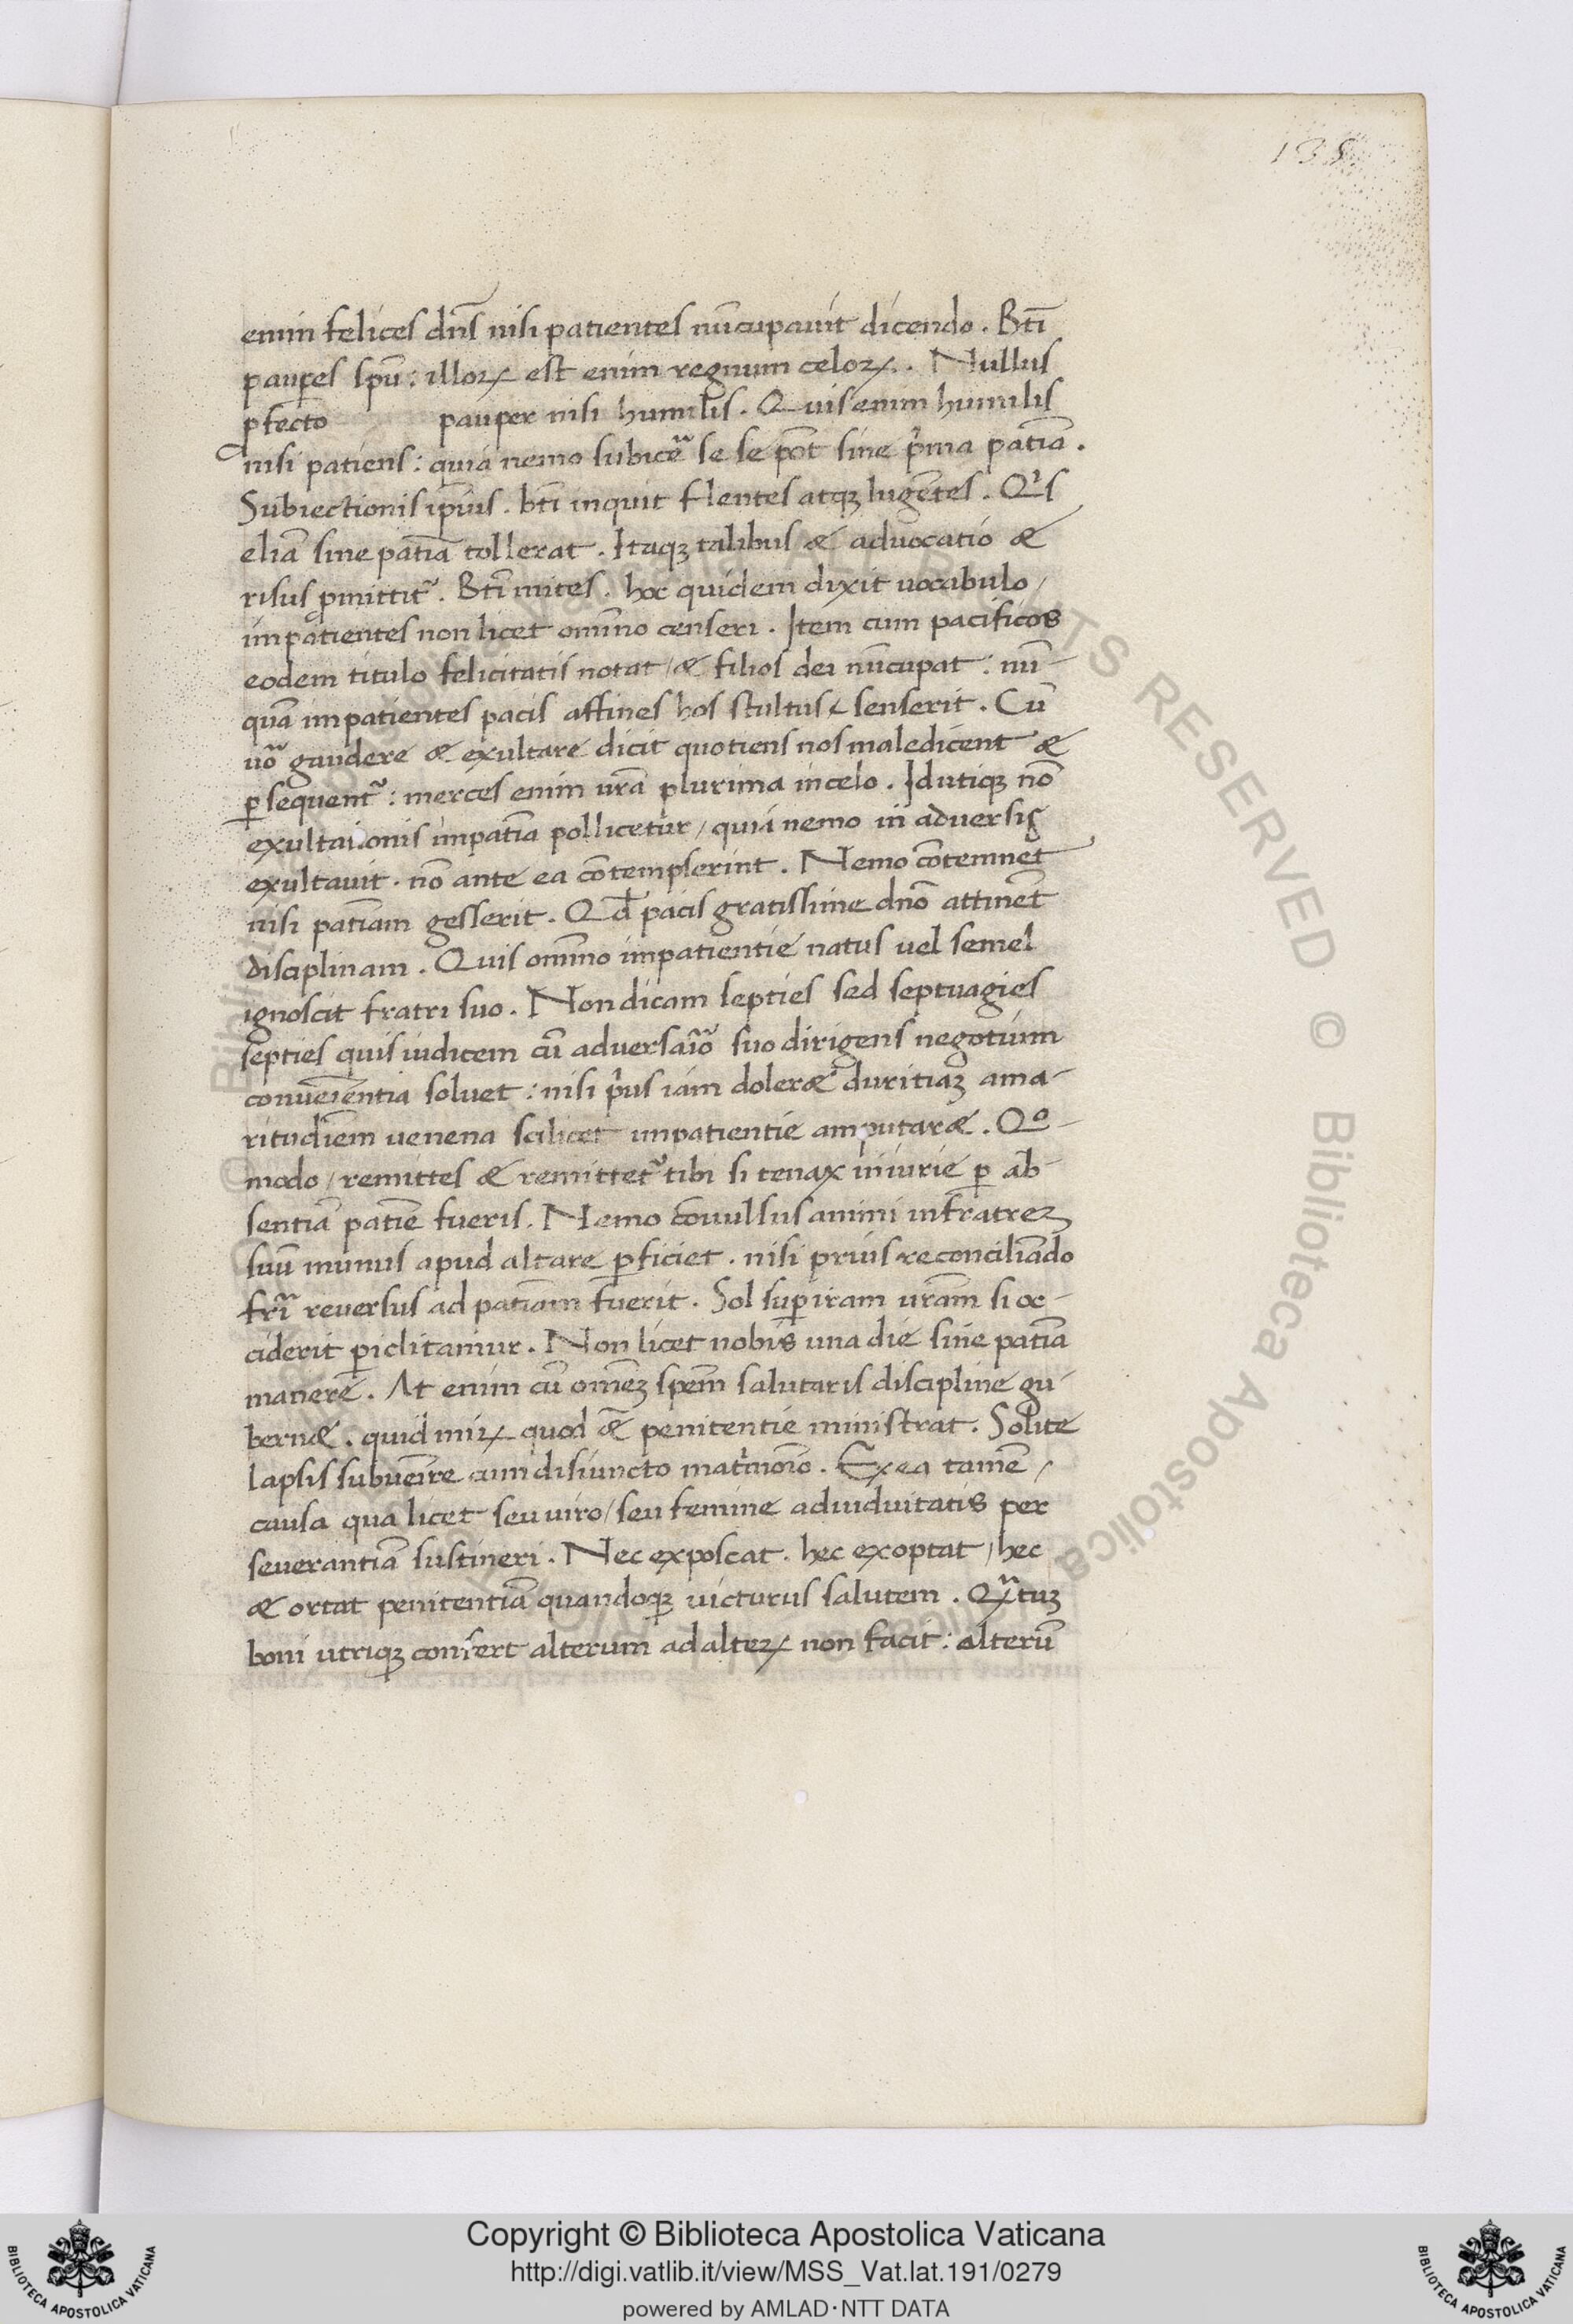 135
enim felices dn̄s nisi patientes nūcupauit dicendo. Bt̄i
paup̲es sp̄u: illoꝝ est enim regnum celoꝝ. Nullus
ꝓfecto pauper nisi humilis. Quis enim humilis
nisi patiens: quia nemo subice se se pōt sine p̓ma patīa.
Subiectionis ip̄ius. bt̄i inquit flentes atqꝫ lugētes. Qis
eliā sine patīa tollerat. Itaqꝫ talibus & aduocatio &
risus ꝓmittit᷑. Bt̄i mites. hoc quidem dixit uocabulo /
impatientes non licet omīno censeri. Item cum pacificos
eodem titulo felicitatis notat / & filios dei nūcupat: nū-
quā impatientes pacis affines hos stultus senserit. Cū
uō gaudere & exultare dicit quotiens nos maledicent &
ꝑsequent᷑: merces enim urā plurima in celo. Id utiqꝫ nō
exultationis impatīa pollicetur / quia nemo in aduersis
exultauit. nō ante ea cōtempserint. Nemo cōtemnet
nisi patīam gesserit. Qđ pacis gratissime dn̄o attinēt
disciplinam. Quis omīno impatientie natus uel semel
ignoscit fratri suo. Non dicam septies sed septuagies
septies quis iudicem cū aduersaīo suo dirigens negotium
conueīentia soluet: nisi p̓us iam doler& duritiaꝫ ama-
ritudīem uenena scilicet impatientie amputar&. Qo-
modo / remittes & remittet᷑ tibi si tenax iniurie ꝑ ab-
sentiā patīe fueris. Nemo cōuulsus animi in fratreꝫ
suū munus apud altare ꝑficiet. nisi prius reconciliādo
frī reuersus ad patīam fuerit. Sol suꝑ iram urām si oc-
ciderit ꝑiclitamur. Non licet nobis una die sine patīa
manere. At enim cū omēꝫ spēm salutaris discipline gu-
bern&. quid miꝝ quod & penitentie ministrat. Solite
lapsis subueīre cum disiuncto matimoīo. Ex ea tamē /
causa qua licet seu uiro / seu femine ad uiduitatis per
seuerantiā sustineri. Nec exposcat. hec exoptat / hec
& ortat penitentiā quandoqꝫ uicturus salutem. Qᷓtuꝫ
boni utriqꝫ confert alterum ad alteꝝ non facit: alterū
Copyright © Biblioteca Apostolica Vaticana
http://digi.vatlib.it/view/MSS_Vat.lat.191/0279
powered by AMLAD·NTT DATA